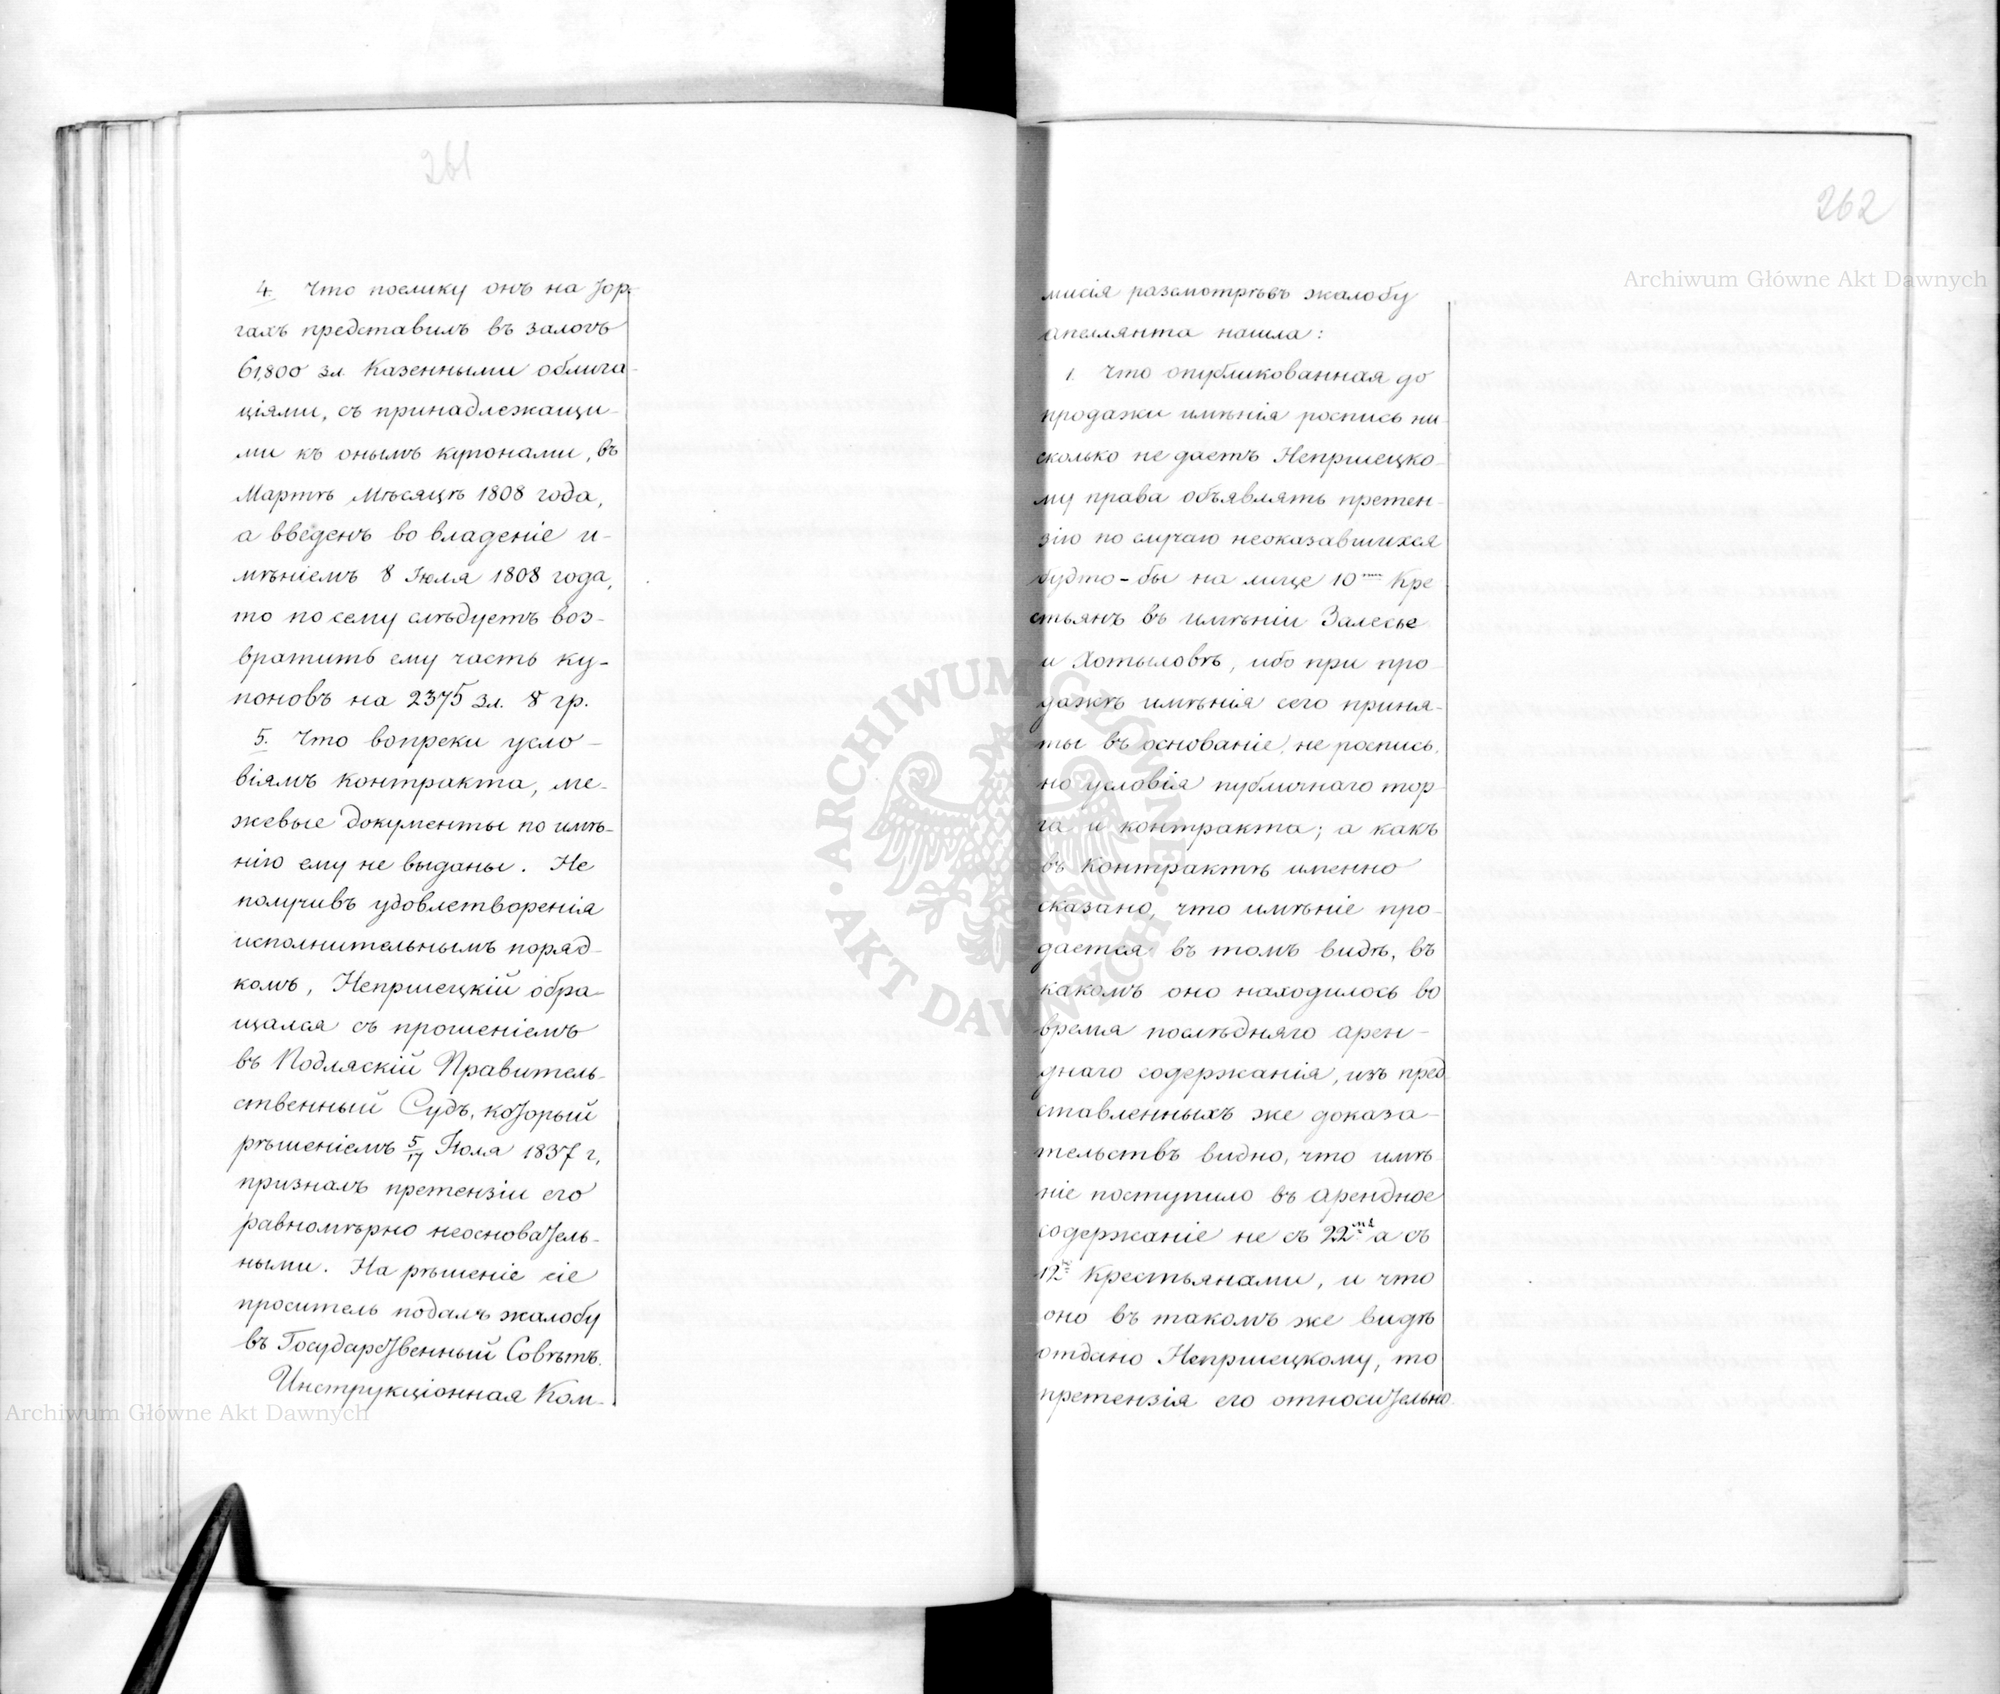 261
4. Что поелику онъ на тор-
гахъ представилъ въ залогъ
61,800 зл. Казенными облига-
ціями, съ принадлежащи-
ми къ онымъ купонами, въ
Мартѣ Мѣсяцѣ 1808 года,
а введенъ во владеніе и-
мѣніемъ 8 Іюля 1808 года,
то по сему слѣдуетъ воз-
вратить ему часть ку-
поновъ на 2375 зл. 8 гр.
5. Что вопреки усло-
віямъ контракта, ме-
жевые документы по имѣ-
нію ему не выданы. Не
получивъ удовлетворенія
исполнительнымъ поряд-
комъ, Непршецкій обра-
щался съ прошеніемъ
въ Подляскій Правитель-
ственный Судъ, который
рѣшеніемъ 5/17 Іюля 1837 г.
призналъ претензіи его
равномѣрно неоснователь-
ными. На рѣшеніе сіе
проситель подалъ жалобу
въ Государственный Совѣтъ.
Инструкціонная Ком-
262
мисія разсмотрѣвъ жалобу
апеллянта нашла:
1. Что опубликованная до
продажи имѣнія роспись ни
сколько не даетъ Непршецко-
му права объявлять претен-
зію по случаю неоказавшихся
будто-бы на лице 10ти Кре
стьянъ въ имѣніи Залесье
и Хотыловѣ, ибо при про-
дажѣ имѣнія сего приня-
ты въ основаніе не роспись,
но условія публичнаго тор-
га и контракта; а какъ
въ контрактѣ именно
сказано, что имѣніе про-
дается въ томъ видѣ, въ
какомъ оно находилось во
время послѣдняго арен-
днаго содержанія, изъ пред
ставленныхъ же доказа-
тельствъ видно, что имѣ-
ніе поступило въ арендное
содержаніе не съ 22мя а съ
12ю Крестьянами, и что
оно въ такомъ же видѣ
отдано Непршецкому, то
претензія его относительно
Archiwum Główne Akt Dawnych
Archiwum Główne Akt Dawnych
ARCHIWUM GŁÓWNE · AKT DAWNYCH ·